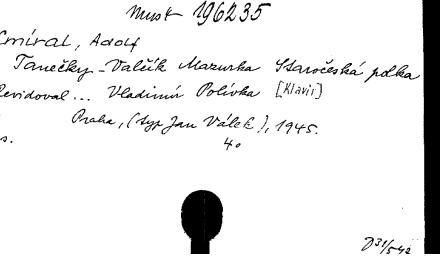 Must 196235
Cmíral, Adolf
Tanečky - Valčík Mazurka Staročeská polka
Revidoval... Vladimír Polívka [Klavír]
Praha, (typ Jan Válek), 1945.
s. 4o
731/542